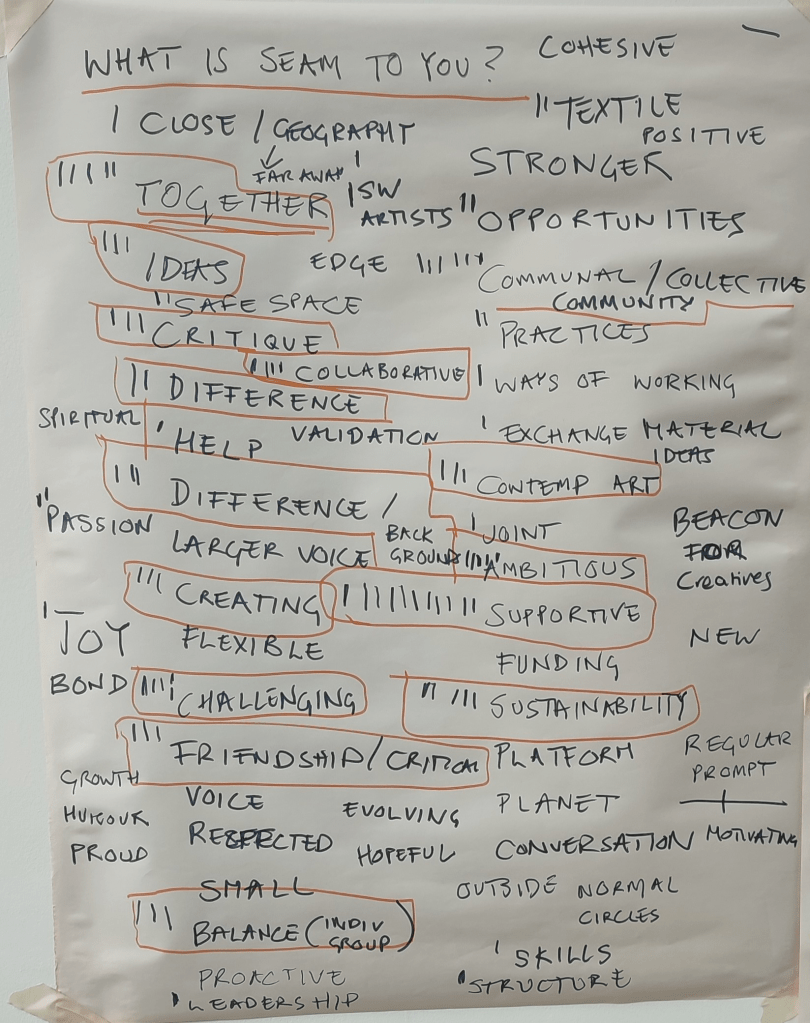 WHAT IS SEAM TO YOU?
COHESIVE
CLOSE / GEOGRAPHY
FAR AWAY
TEXTILE
POSITIVE
STRONGER
TOGETHER
SW
ARTISTS
OPPORTUNITIES
IDEAS
EDGE
COMMUNAL / COLLECTIVE
COMMUNITY
SAFE SPACE
PRACTICES
CRITIQUE
COLLABORATIVE
DIFFERENCE
WAYS OF WORKING
SPIRITUAL
HELP
VALIDATION
EXCHANGE MATERIAL
IDEAS
CONTEMP ART
DIFFERENCE /
PASSION
LARGER VOICE
BACK
GROUNDS
JOINT
AMBITIOUS
BEACON
FOR
Creatives
CREATING
SUPPORTIVE
JOY
FLEXIBLE
NEW
FUNDING
BOND
CHALLENGING
SUSTAINABILITY
FRIENDSHIP / CRITICAL
PLATFORM
REGULAR
PROMPT
GROWTH
VOICE
EVOLVING
PLANET
RESPECTED
HOPEFUL
CONVERSATION
MOTIVATING
PROUD
SMALL
OUTSIDE NORMAL
CIRCLES
BALANCE (INDIV
GROUP)
SKILLS
PROACTIVE
STRUCTURE
LEADERSHIP